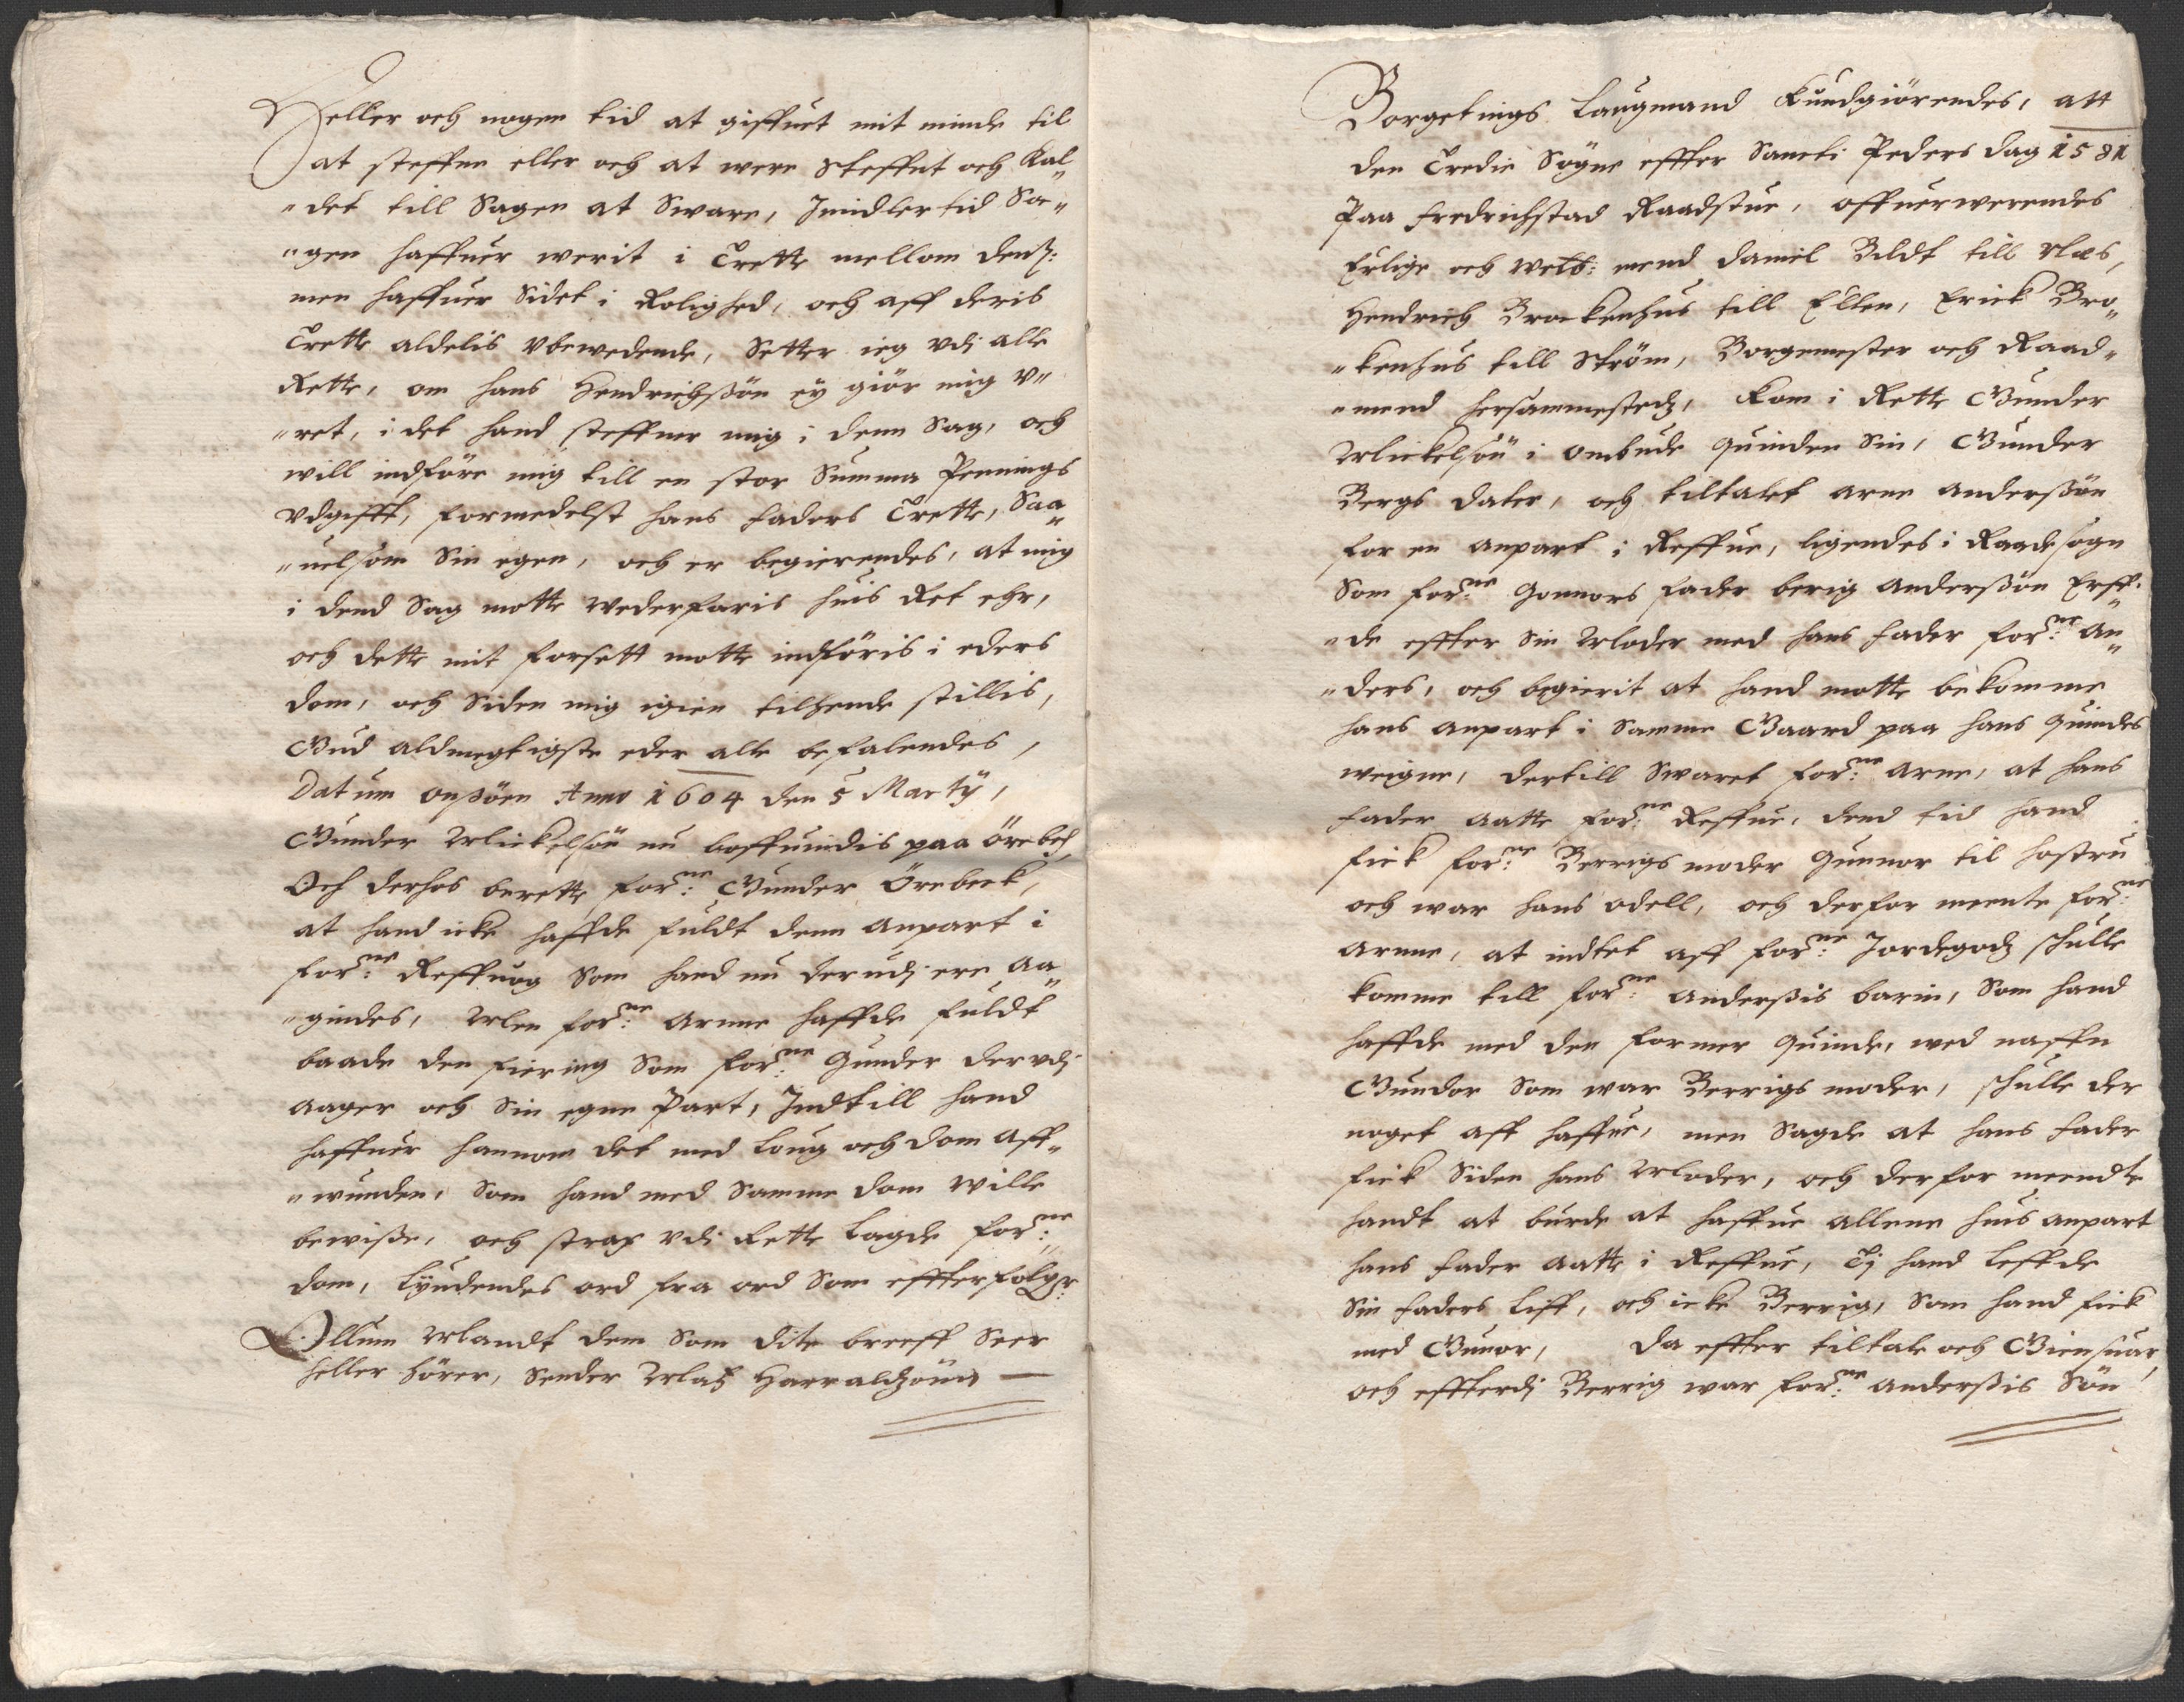 Heller och nogen tid at giffuet mit minde til
at steffne eller och at were Steffnt och Kal„
„det till Sagen at Sware, Imidlertid Sa„
„gen haffuer werit i Trette mellom dennß:
men haffuer Sidet i Rolighed, och aff deris
Trette aldelis Vbewedende, Setter ieg vdj alle
Rette, om hans Hendrichßön ey giör mig V„
„ret, i det hand steffner mig i denn Sag, och
will indföre mig till en stor Summa Pennings
Vdgifft, formedelst hans faders Trette, Saa„
„uelsom Sin egen, och er begierendes, at mig
i dend Sag motte Wederfaris huis Ret ehr,
och dette mit forsett motte indföris i eders
dom, och Siden mig igien tilhende stillis,
Gud aldmegtigste eder alle befalendes,
Datum onßöen Anno 1604 den 5 Martÿ,
Gunder Mickelsön nu boffuindis paa Örebeck
Och derhos berette for:ne Gunder Örebeck,
at hand icke haffde fuldt denn Anpart i
for:ne Reffuog Som hand nu derudj ere Aa„
„gindes, Men for:ne Arnne haffde fuldt
baade den fiering Som for:ne Gunder dervdj
aager och Sin egne Part, Indtill hand
haffuer hannom det med Loug och dom aff„
„wunden, Som hand med Samme dom wille
bewisse, och strax vdj Rette Lagde for:ne
dom, Lÿudendes ord fra ord Som effterfolger:
Ollum Mandt dem Som dite breeff Seer
heller hörer, Sender Matz Harraldzönn —
Borgetings Laugmand Kundgiörendes, att
den Tredie Sögne effter Sancti Peders dag 1581
Paa Fredrichstad Raadstue, offuerwerendes
Erlige och Welb: mend Daniel Bildt till Næs,
Hendrich Brockenhus till Ellen, Erick Bro„
„kenhus till Ström, Borgemester och Raad„
„mend hersammestedz, Kom i Rette Gunder
Mickelsön i Ombude Quinden Sin, Gunder
Bergs dater, och tiltalet Arne Anderßön
for en Anpart i Reffue, ligendes i Raade sogn
Som for:ne Gonnors fader berig Anderßön Erff„
„de effter Sin Moder med hans fader for:ne An„
„ders, och begierit at hand motte bekomme
hans Anpart i Samme Gaard paa hans Quindes
weigne, dertill Swaret for:ne Arne, at hans
fader Aatte for:ne Reffue, dend tid hand
fick for:ne Berrigs moder Gunnor til hostru
och war hans odell, och derfor meente for:ne
Arnne, at indtet aff for:ne Jordegodz schulle
komme till for:ne Anderßis barin, Som hand
haffde med den former Quinde, wed naffn
Gundor Som war Berrigs moder, schulle der
noget aff haffue, men Sagde at hans fader
fick Siden hans Moder, och derfor meendte
handt at burde at haffue allene huis Anpart
hans fader Aatte i Reffue, Tj hand Leffde
Sin faders Liff, och icke Berrig, Som hand fick
med Gunor, Da effter tiltale och Giensuar,
och effterdj Berrig war for:ne Anderßis Sön